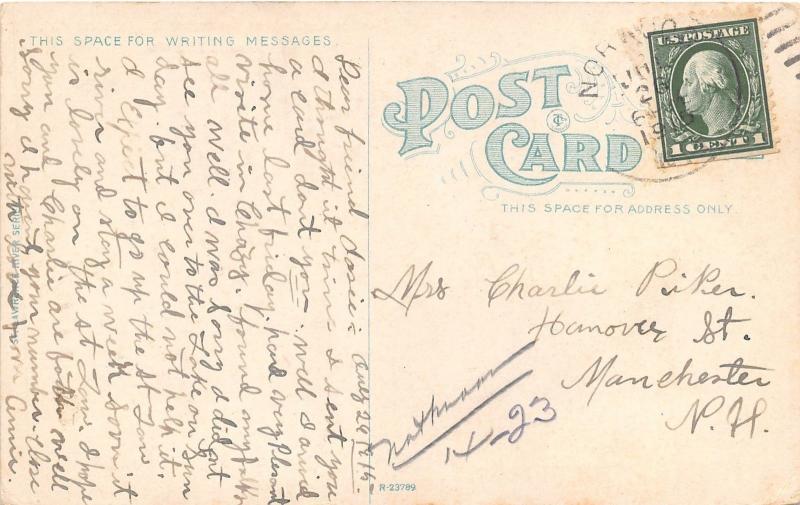 THIS SPACE FOR WRITING MESSAGES
Dear friend Josie:
I thought it time I sent you
a card dont you. Well I arrived
home last friday, had very plesent
visite in Chazy. found my folks
all well. I was Sorry I did not
see you over to the Lake on Sun
day but I could not help it.
I Expect to go up the St Law
river and stay a week soon it
is lovely on the St Law. I hope
you and Charlie are both well
Sorry I havent your number. Close
with love Annie.
POST
CARD
THIS SPACE FOR ADDRESS ONLY.
U.S. POSTAGE
1 CENT 1
Mrs Charlie
Hanover St.
Manchester
N.H.
14-23
R-23789
RIVER SERIES